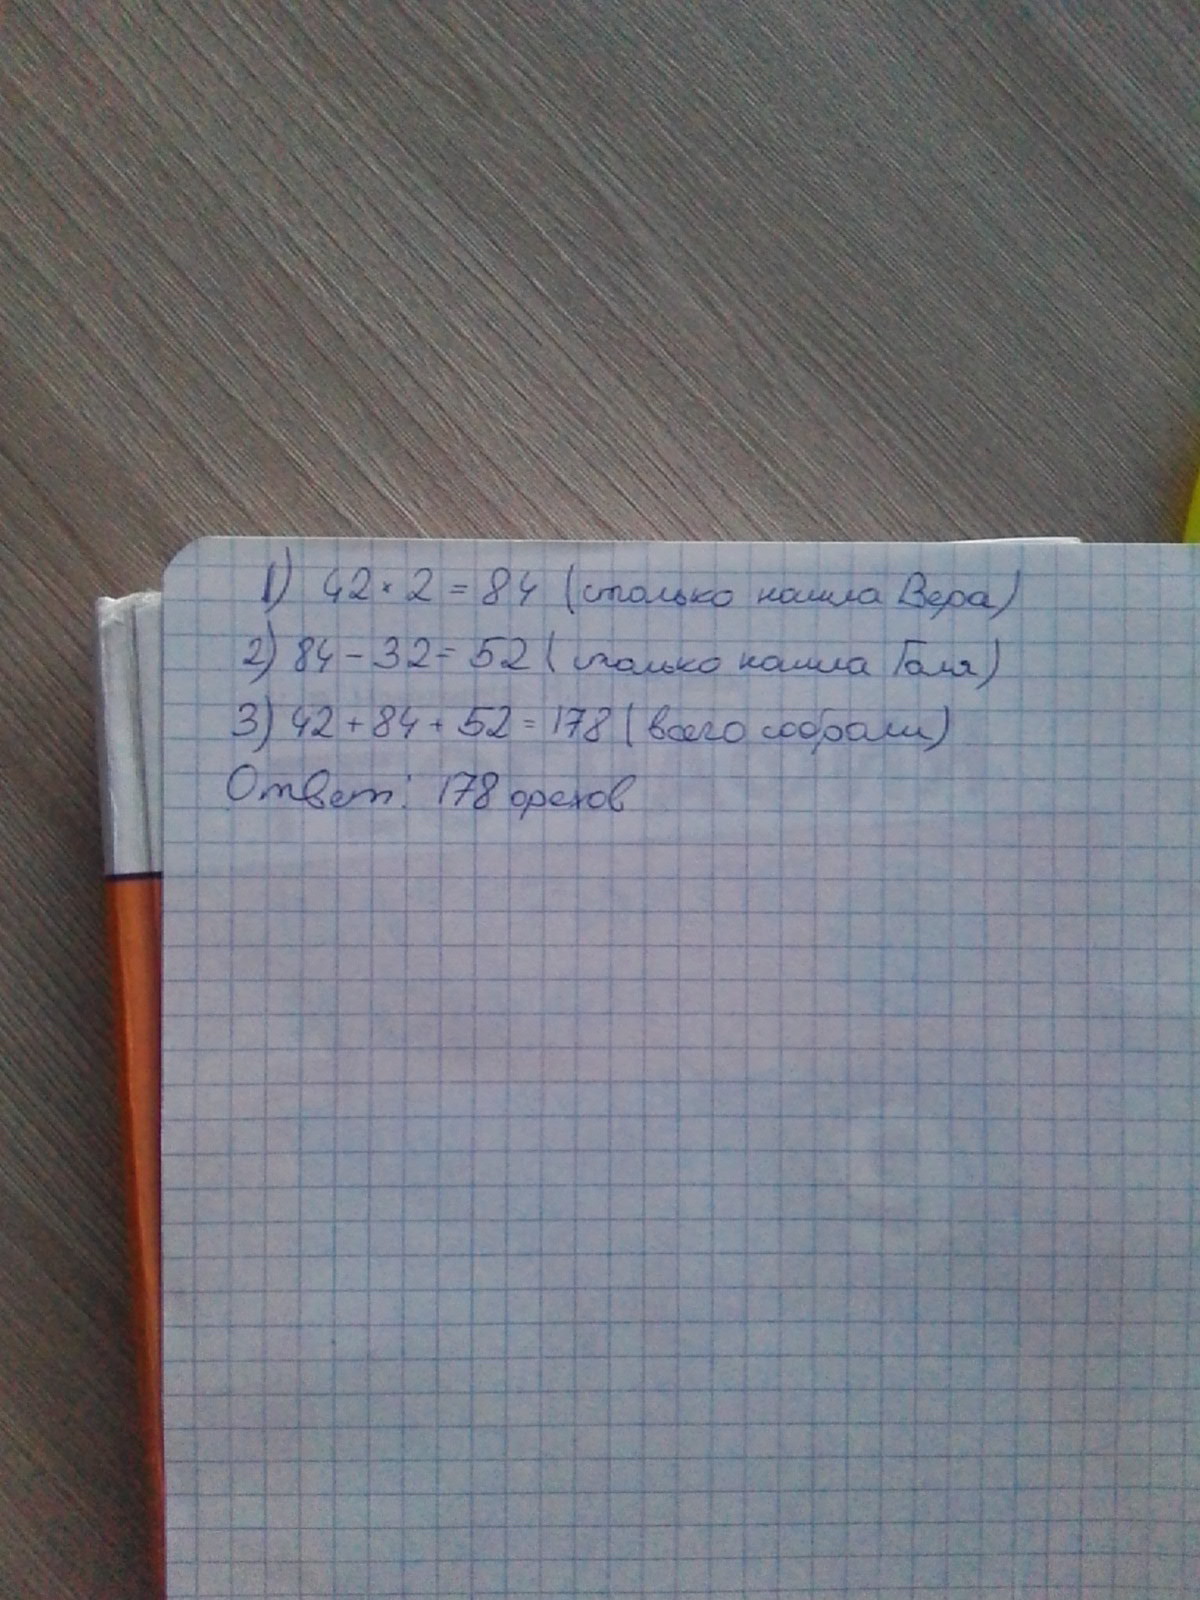 1) 42 · 2 = 84 (столько нашла Вера)
2) 84 - 32 = 52 (столько нашла Галя)
3) 42 + 84 + 52 = 178 (всего собрали)
Ответ: 178 орехов